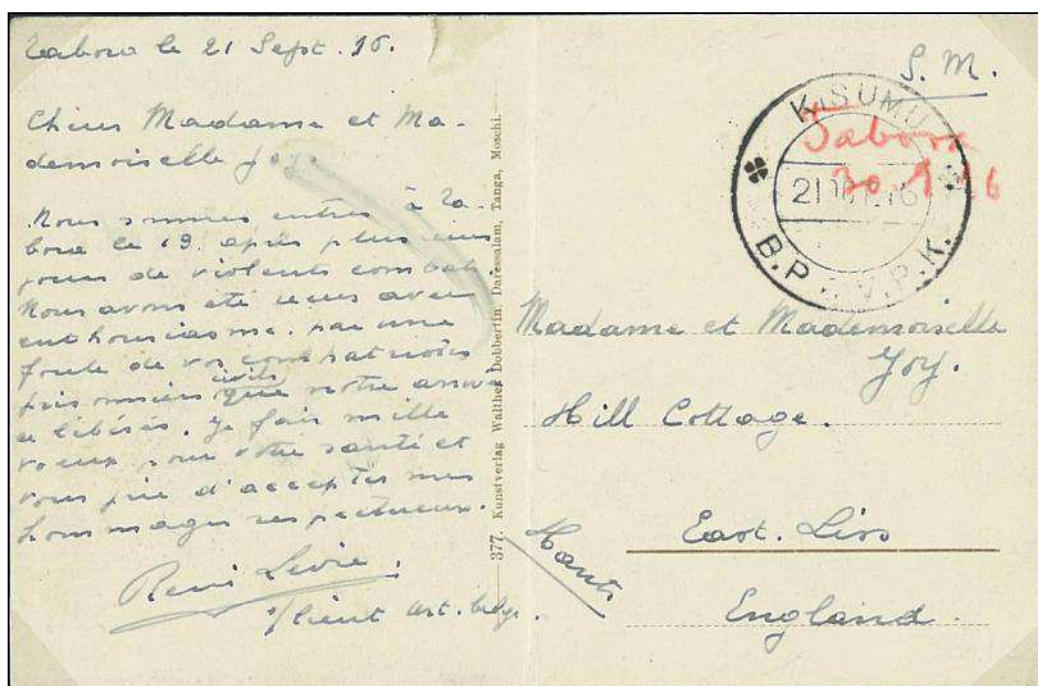 Tabora le 21 Sept. 16.
Chères Madame et Ma-
demoiselle Joy.
Nous sommes entrés à Ta-
bora le 19. après plusieurs
jours de violents combats.
Nous avons été reçus avec
enthousiasme par une
foule de vos compatriotes
prisonniers civils que notre armée
a libérés. Je fais mille
voeux pour votre santé et
vous prie d'accepter mes
hommages respectueux.
René
s/lieut art. belge.
377. Kunstverlag Walther Dobbertin, Daressalam, Tanga, Moschi.
S. M.
KISUMU
Tabora
B.P.
V.P.K.
Madame et Mademoiselle
Joy.
Hill Cottage.
East. Liss
Hants
England.